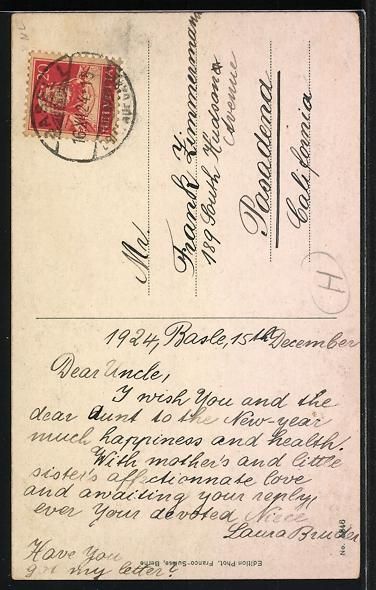 Mr.
Frank Zimmermann
189 South Hudson
Avenue
Pasadena
California
H
20
HELVETIA
1924, Basle, 15th December
Dear Uncle,
I wish You and the
dear aunt to the New-year
much happiness and health.
With mother's and little
sister's affectionnate love
and awaiting your reply,
ever Your devoted Niece
Laura
Have You
got my letter?
Edition Phot. Franco-Suisse, Berne
No.